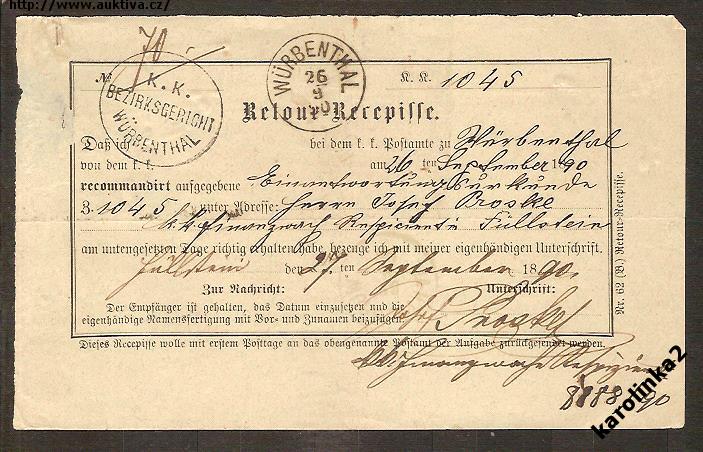 http://www.auktiva.cz/
70
№
K. K.
BEZIRKSGERICHT
WÜRBENTHAL
WÜRBENTHAL
26
9
90
K. K. 1045
Retour-Recepisse.
Daß ich bei dem k. k. Postamte zu Würbenthal
von dem k. k. am 26 ten September 1890
recommandirt aufgegebene Einantwortungsurkunde
Z. 1045 unter Adresse: Herrn Josef Proske
k. k. Finanzwach Respiciente Füllstein
am untengesetzten Tage richtig erhalten habe, bezeuge ich mit meiner eigenhändigen Unterschrift.
Füllstein den 27 ten September 1890.
Zur Nachricht: Unterschrift:
Der Empfänger ist gehalten, das Datum einzusetzen und die
eigenhändige Namensfertigung mit Vor- und Zunamen beizufügen.
Josef Proske
Dieses Recepisse wolle mit erstem Posttage an das obengenannte Postamt der Aufgabe zurückgesendet werden.
k. k. Finanzwach Respizient
90
Nr. 62 (B.) Retour-Recepisse.
karolinka2